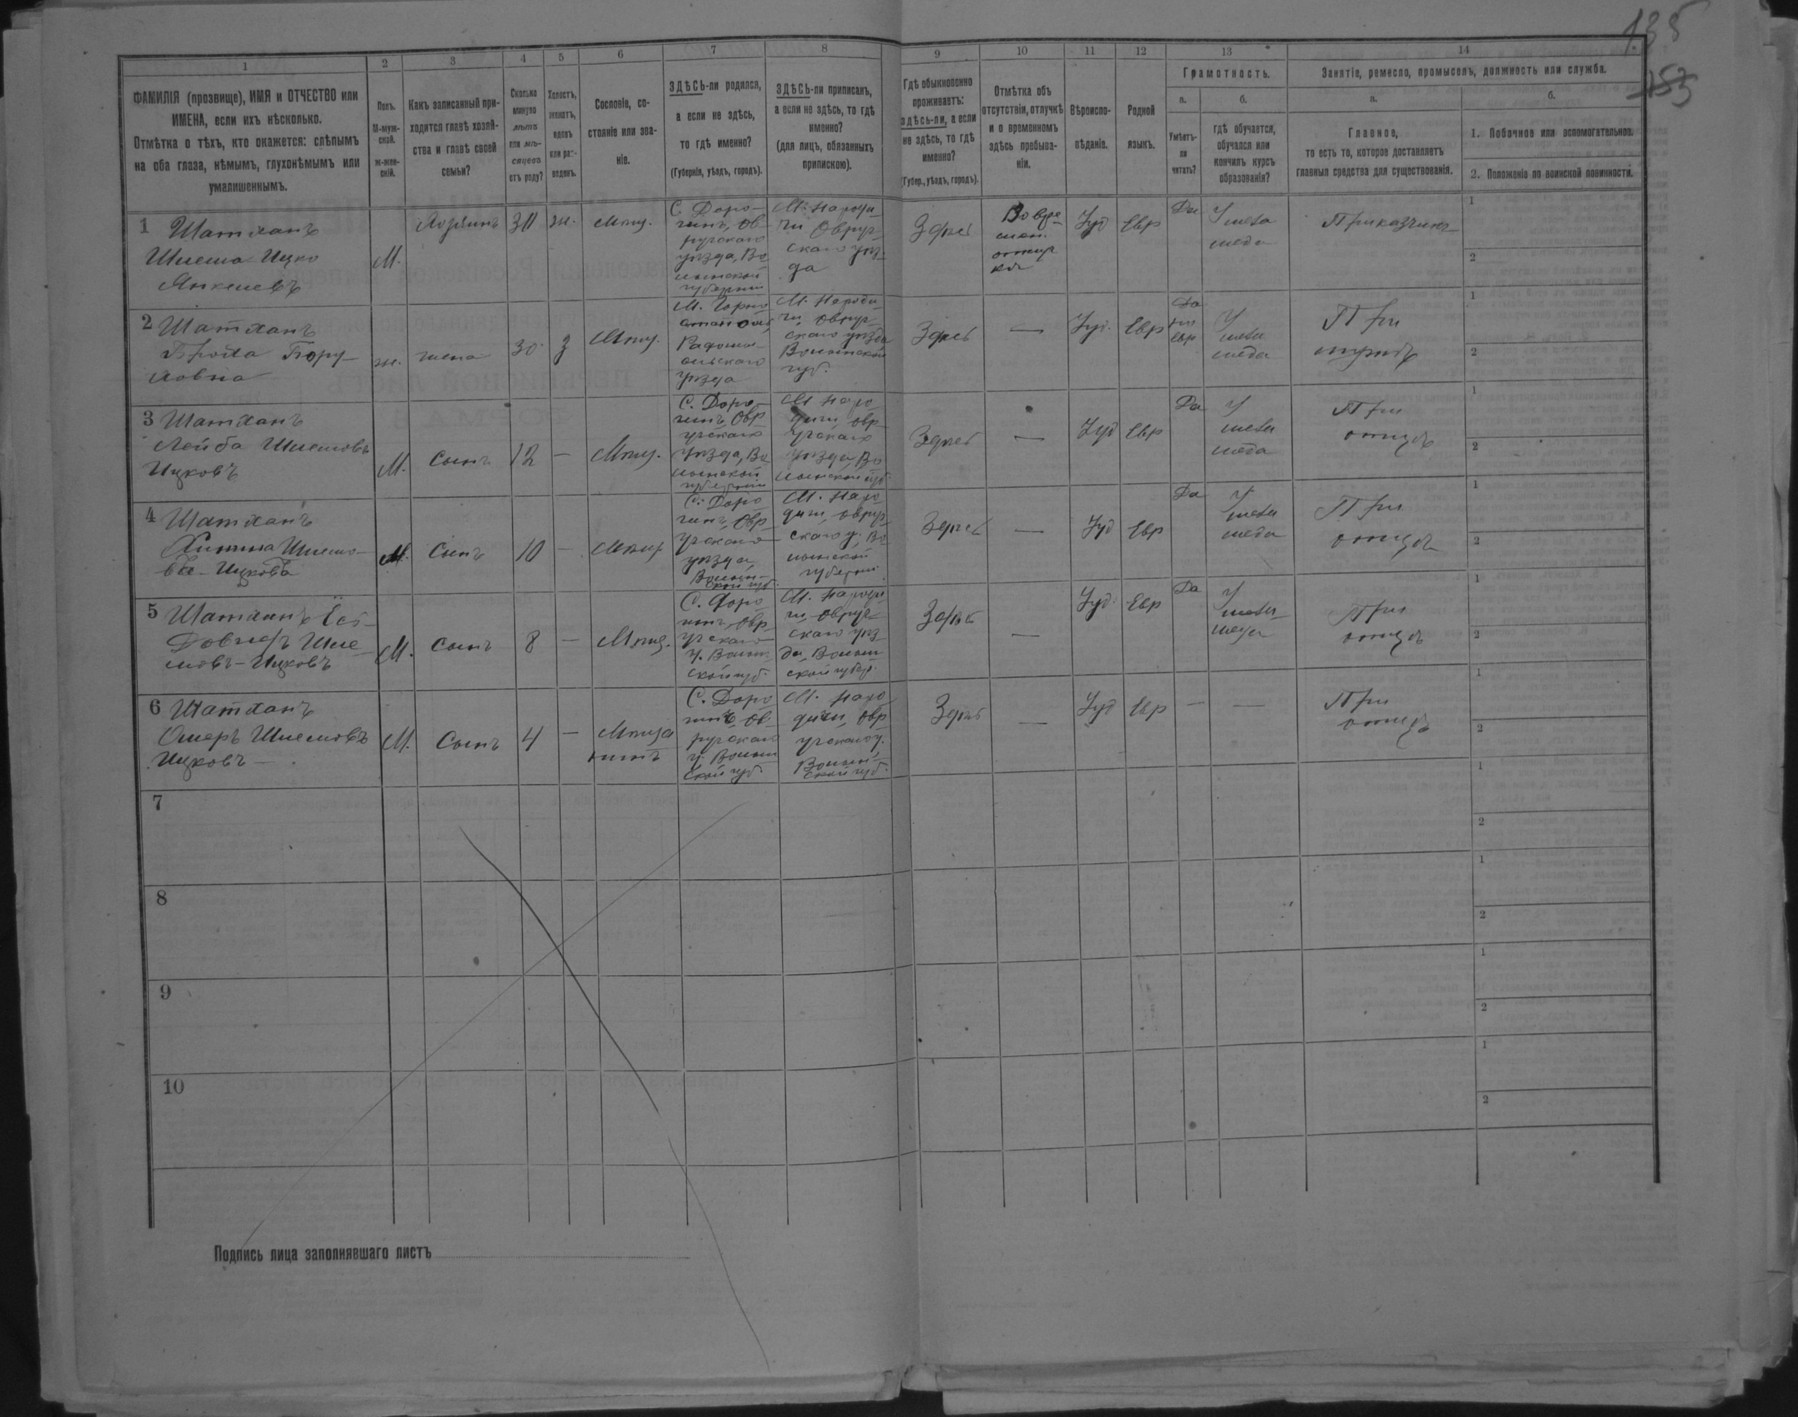 135
153
1
2
3
4
5
6
7
8
9
10
11
12
13
14
ФАМИЛІЯ (прозвище), ИМЯ и ОТЧЕСТВО или
ИМЕНА, если ихъ нѣсколько.
Отмѣтка о тѣхъ, кто окажется: слѣпымъ
на оба глаза, нѣмымъ, глухонѣмымъ или
умалишеннымъ.
Полъ.
М-муж-
ской.
ж-жен-
скій.
Какъ записанный при-
ходится главѣ хозяй-
ства и главѣ своей
семьи?
Сколько
минуло
лѣтъ
или мѣ-
сяцевъ
отъ роду?
Холостъ,
женатъ,
вдовъ
или раз-
веденъ.
Сословіе, со-
стояніе или зва-
ніе.
ЗДѢСЬ-ли родился,
а если не здѣсь,
то гдѣ именно?
(Губернія, уѣздъ, городъ).
ЗДѢСЬ-ли приписанъ,
а если не здѣсь, то гдѣ
именно?
(для лицъ, обязанныхъ
припискою).
Гдѣ обыкновенно
проживаетъ:
здѣсь-ли, а если
не здѣсь, то гдѣ
именно?
(Губер., уѣздъ, городъ).
Отмѣтка объ
отсутствіи, отлучкѣ
и о временномъ
здѣсь пребыва-
ніи.
Вѣроиспо-
вѣданіе.
Родной
языкъ.
Грамотность.
а.
Умѣетъ-
ли
читать?
б.
гдѣ обучается,
обучался или
кончилъ курсъ
образованія?
Занятіе, ремесло, промыселъ, должность или служба.
а.
Главное,
то есть то, которое доставляетъ
главныя средства для существованія.
б.
1. Побочное или вспомогательное.
2. Положеніе по воинской повинности.
1 Шатханъ
Шлема-Ицко
Янкелевъ
М.
Хозяинъ
ж.
Мѣщ.
С. Доро-
гинь, Ов-
ручскаго
уѣзда, Во
лынской
губерніи
М. Народи-
чи Овруч-
скаго уѣз-
да
Здѣсь
Іуд
Евр
Да
У
мела
меда
Приказчикъ
1
2
2 Шатханъ
ж.
жена
30
З
Мѣщ.
Радомы-
сльскаго
уѣзда
М. Народи
чи, Овруч-
скаго уѣзда
Волынской
губ.
Здѣсь
—
Іуд.
Евр
Да
евр
У
мела
меда
При
мужѣ
1
2
3 Шатханъ
Лейба Шлемовъ
Ицковъ
М.
Сынъ
12
—
Мѣщ.
С. Доро-
гинь, Овр
учскаго
уѣзда, Во
лынской
губерніи
М. Наро-
дичи, Овр-
учскаго
уѣзда, Во
лынской губ
Здѣсь
—
Іуд
Евр
Да
У
мела
меда
При
отцѣ
1
2
4 Шатханъ
М.
Сынъ
10
—
Мѣщ
С. Доро
гинь, Овр
учскаго
уѣзда,
Волын-
ской губ.
М. Наро
дичи, Овруч
скаго у. Во
лынской
губерніи
Здѣсь
—
Іуд
Евр
Да
У
мела
меда
При
отцѣ
1
2
5 Шатханъ
М.
Сынъ
8
—
Мѣщ.
С. Доро
гинь, Овр
учскаго
у. Волын
ской губ.
М. Народи
чи, Овруч-
скаго уѣз-
да, Волын
ской губер.
Здѣсь
—
Іуд.
Евр
Да
При
отцѣ
1
2
6 Шатханъ
Ошеръ Шлемовъ
Ицковъ —
М.
Сынъ
4
—
Мѣща
нинъ
С. Доро
гинь, Ов-
ручскаго
у. Волын
ской губ.
М. Наро
дичи, Овр
учскаго у.
Волын-
ской губ.
Здѣсь
—
Іуд
Евр
—
—
При
отцѣ
1
2
7
1
2
8
1
2
9
1
2
10
1
2
Подпись лица заполнявшаго листъ